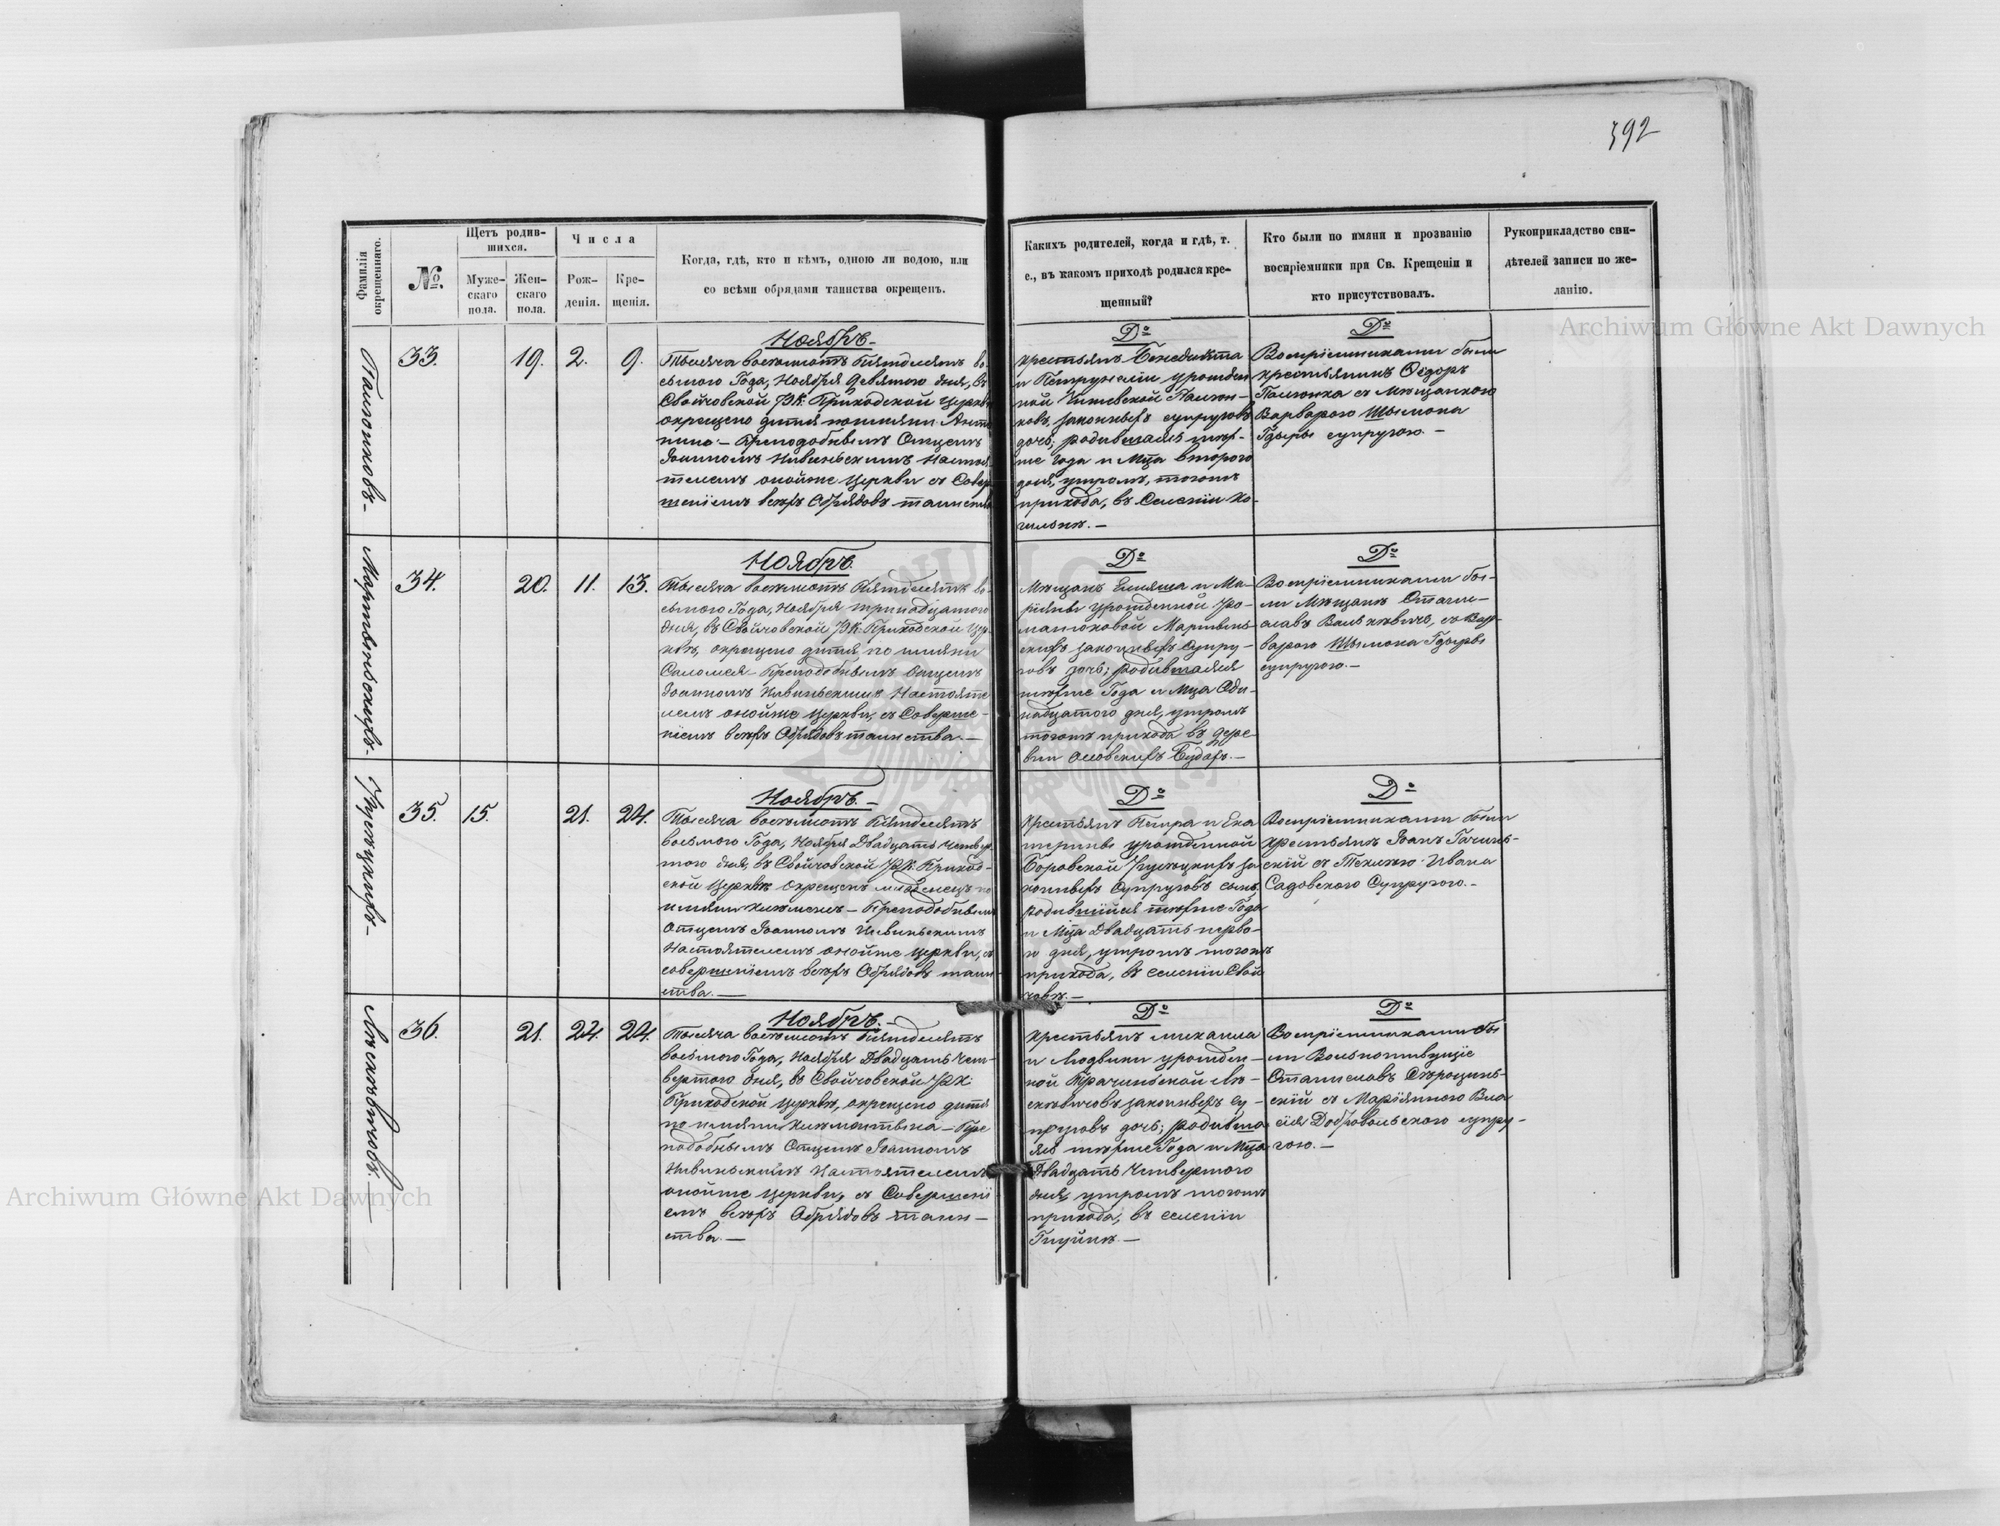 392
Фамилія окрещеннаго.
№.
Щетъ родив-
шихся.
Муже-
скаго
пола.
Жен-
скаго
пола.
Числа
Рож-
денія.
Кре-
щенія.
Когда, гдѣ, кто и кѣмъ, одною ли водою, или
со всѣми обрядами таинства окрещенъ.
Какихъ родителей, когда и гдѣ, т.
е., въ какомъ приходѣ родился кре-
щенный?
Кто были по имяни и прозванію
воспріемники при Св. Крещеніи и
кто присутствовалъ.
Рукоприкладство сви-
дѣтелей записи по же-
ланію.
33.
19.
2.
9.
Ноябрь.—
Тысяча восемьсотъ Пятдесятъ во-
сьмого Года, Ноября Девятого дня, въ
Свойчовской РК. Приходской Церкви
окрещено дитя по имяни
Преподобнымъ Отцемъ
Іоанномъ Настоя
телемъ онойже Церкви съ Совер
шеніемъ всѣхъ Обрядовъ таинства
Dо
Крестьянъ Бенедикта
и Петрунелiи урожден
ной
ковъ, законныхъ супруговъ
дочь; родившаяся тѣхъ-
же Года и Мца второго
дня, утромъ, тогожъ
прихода, въ Селеніи Ко-
Dо
Воспріемниками были
крестьянинъ Ѳедоръ
съ Мѣщанкою
Варварою Шымона
супругою.—
Мартыньскихъ.
34.
20.
11.
13.
Ноябрь.
Тысяча восемьсотъ Пятдесятъ во-
сьмого Года, Ноября тринадцатого
дня, въ Свойчовской РК. Приходской Цер-
квѣ, окрещено дитя по имяни
Саломея — Преподобнымъ Отцемъ
Іоанномъ Настояте
лемъ онойже Церкви, съ Соверше-
ніемъ всѣхъ Обрядовъ таинства.—
Dо
Мѣщанъ и Ма-
ріянны урожденной Ро-
манюковой Мартынь-
скихъ законныхъ Супру-
говъ дочь; родившаяся
тѣхже Года и Мца Оди-
надцатого дня, утромъ
тогожъ прихода въ дере-
вни
Dо
Воспріемниками бы-
ли Мѣщанъ Стани-
славъ съ Вар-
варою Шымона
супругою.—
35.
15.
21.
24.
Ноябрь.—
Тысяча восемьсотъ Пятдесятъ
восьмого Года, Ноября Двадцать Четвер
того дня, въ Свойчовской РК. Приход-
ской Церквѣ окрещенъ младенецъ по
имяни Климентъ — Преподобнымъ
Отцемъ Іоанномъ
Настоятелемъ онойже Церкви, съ
совершеніемъ всѣхъ Обрядовъ таин-
ства.—
Dо
Крестьянъ Петра и Ека
терины урожденной
Боровской за
конныхъ Супруговъ сынъ,
родившійся тѣхже Года
и Мца Двадцать перво-
го дня, утромъ тогожъ
прихода, въ селеніи Свой
човѣ.—
Dо
Воспріемниками были
крестьянъ Іоанъ
скій съ Теклею Ивана
Садовского Супругою.—
Лясковичовъ.—
36.
21.
24.
24.
Ноябрь.—
Тысяча восемьсотъ Пятдесятъ
восьмого Года, Ноября Двадцать Чет-
вертого дня, въ Свойчовской РК.
Приходской Церквѣ, окрещено дитя
по имяни Климентына — Пре
подобнымъ Отцемъ Іоанномъ
Настоятелемъ
онойже Церкви, съ Совершені
емъ всѣхъ Обрядовъ таин—
ства.—
Dо
Крестьянъ Михаила
и Людвики урожден-
ной
законныхъ Су-
пруговъ дочь; родивша
яся тѣхже Года и Мца
Двадцать Четвертого
дня, утромъ тогожъ
прихода, въ селеніи
Dо
Воспріемниками бы
ли Вольноживущіе
Станиславъ
скій съ Маріянною Вла
сія Добровольского супру-
гою.—
Archiwum Główne Akt Dawnych
Archiwum Główne Akt Dawnych